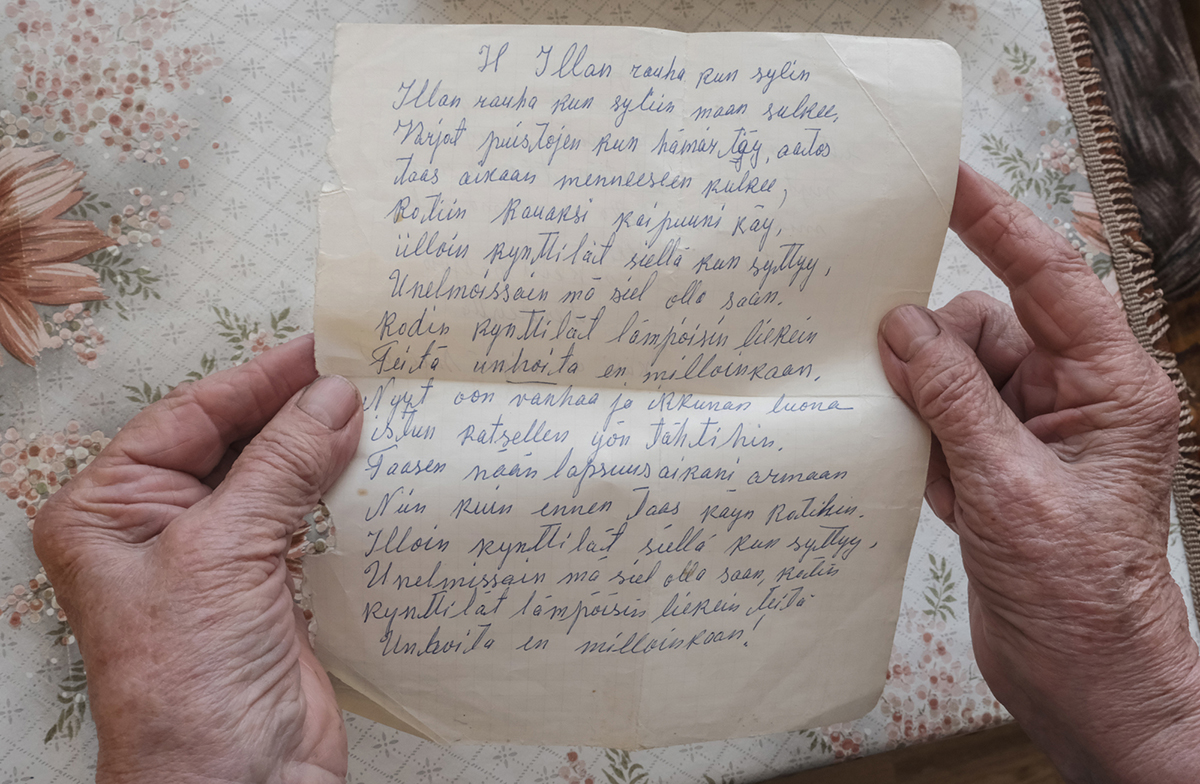 H Illan rauha kun sylin
Illan rauha kun syliin maan sulkee,
Varjot puistojen kun hämärtäy, aatos
taas aikaan menneeseen kulkee,
kotiin kauaksi kaipuuni käy,
illoin kynttilät siellä kun syttyy,
Unelmoissain mä siel olla saan.
kodin kynttilät lämpöisin liekein
Teitä unhoita en milloinkaan.
Nyyt oon vanhaa ja ikkunan luona
istun katsellen yön tähtihin.
Taasen nään lapsuusaikani armaan
Niin kuin ennen taas käyn kotihin.
Illoin kynttilät siellä kun syttyy,
Unelmissain mä siel olla saan, kotiin
kynttilät lämpöisin liekein teitä
Unhoita en milloinkaan!